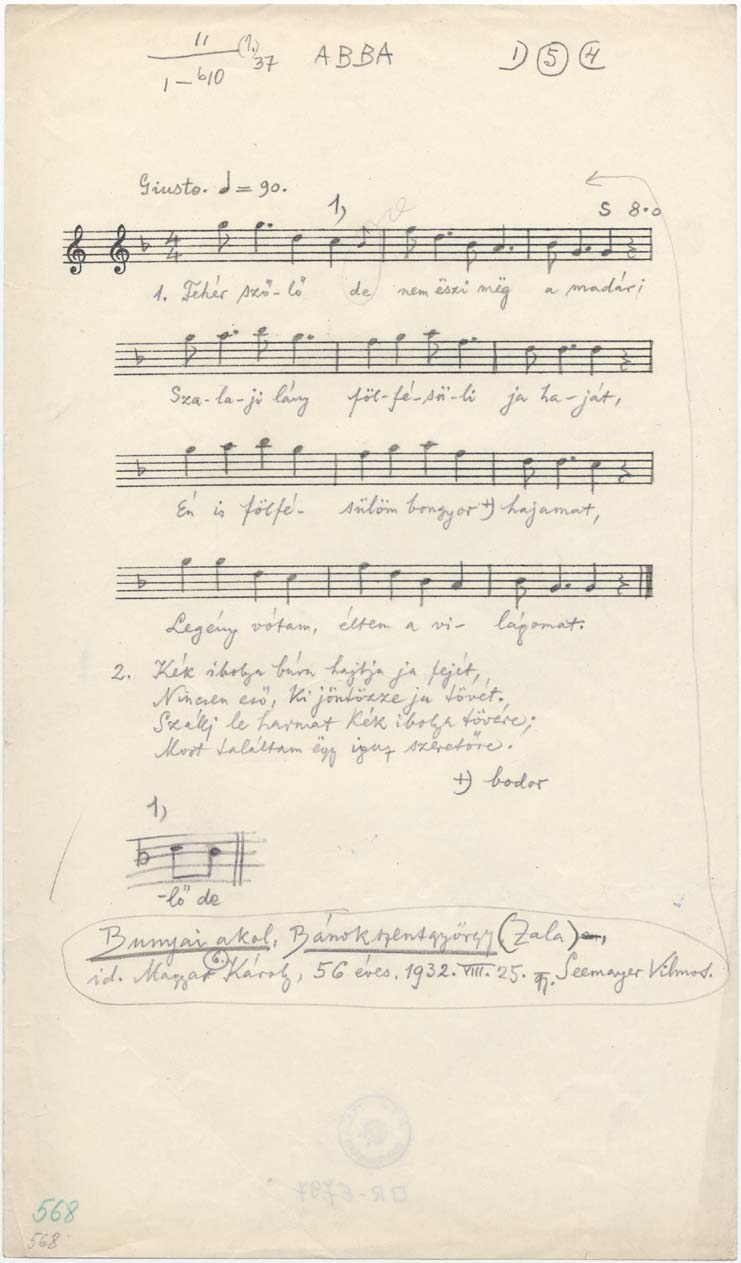 11 (1.) 37 ABBA 1) 5 4
1-b10
Giusto. = 90.
1,
S 8.0
4
4
1. Fehér sző-lő de nem ëszi mëg a madár;
Sza-la-ji lány föl-fé-sü-li ja ha-ját,
Én is fölfé- sülöm bongyor +) hajamat,
Legény vótam, éltem a vi- lágomat.
2. Kék ibolya búra hajtja ja fejét,
Nincsen eső, ki jöntözze ja tövét.
Szállj le harmat kék ibolya tövére;
Most találtam ëgy igaz szeretőre.
+) bodor
1,
-lő de
Bunyai akol, Bánokszentgyörgy (Zala),
id. Magyar Károly, 56 éves. 1932. VIII. 25. Seemayer Vilmos.
6.
568
568